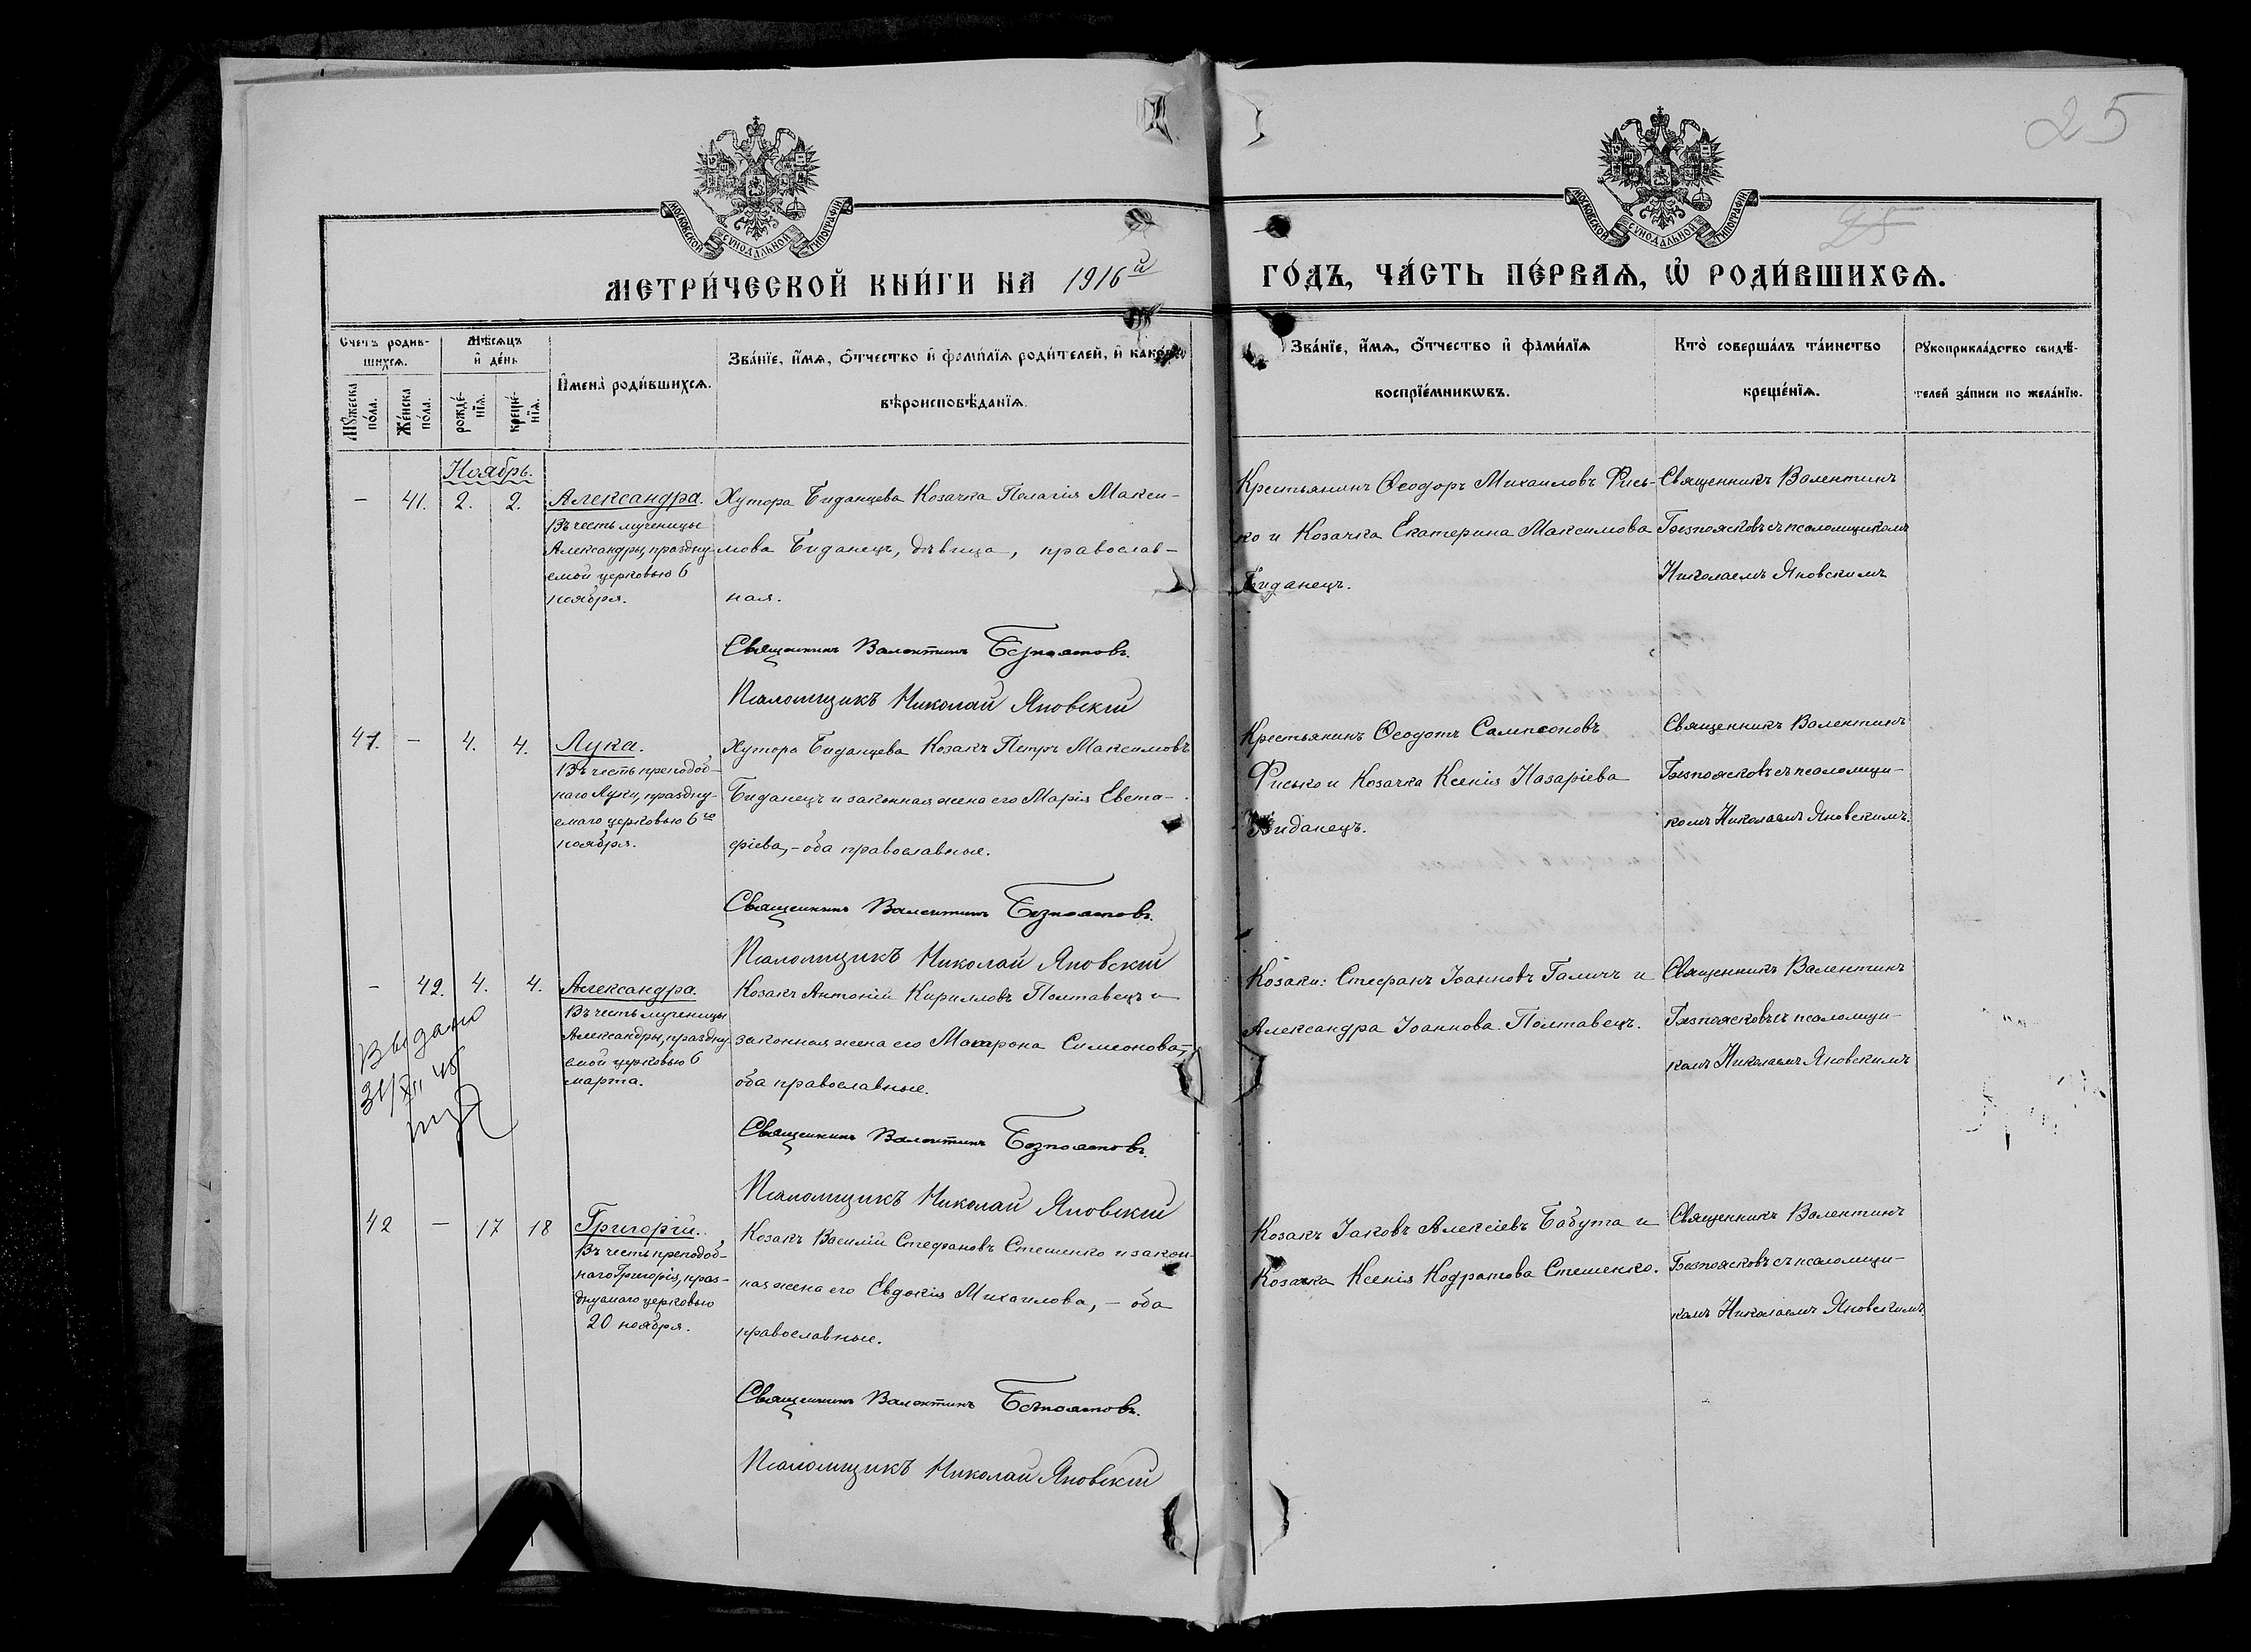 25
МОСКОВСКОЙ СУНОДАЛЬНОЙ ТИПОГРАФІИ
МОСКОВСКОЙ СУНОДАЛЬНОЙ ТИПОГРАФІИ
25
МЕТРИ́ЧЕСКОЙ КНИ́ГИ НА 1916й ГО́ДЪ, ЧА́СТЬ ПЕ́РВАѦ, Ѡ҆ РОДИ́ВШИХСѦ.
Счетъ родив-
шихсѧ.
Мꙋ́жеска по́ла.
Же́нска по́ла.
Мѣ́сѧцъ
и҆ де́нь
рожде́-
нїѧ.
креще́-
нїѧ.
И҆мена̀ роди́вшихсѧ.
Зва́нїе, и҆́мѧ, ѻ҆́тчество и҆ фами́лїѧ роди́телей, и҆ како́гѡ
вѣроисповѣ́данїѧ.
Зва́нїе, и҆́мѧ, ѻ҆́тчество и҆ фами́лїѧ
воспрїе́мникѡвъ.
Кто̀ соверша́лъ та́инство
креще́нїѧ.
Рꙋкоприкла́дство свидѣ́-
телей за́писи по жела́нїю.
Ноябрь.
– 41. 2. 2.
Александра.
Въ честь мученицы
Александры, праздну-
емой церковью 6
ноября.
Хутора Биданцева Козачка Пелагія Макси-
мова Биданецъ, дѣвица, православ-
ная.
Священникъ Валентинъ Безпоясковъ.
Псаломщикъ Николай Яновскій
Крестьянинъ Ѳеодоръ Михаиловъ Фись-
ко и Козачка Екатерина Максимова
Биданецъ.
Священникъ Валентинъ
Безпоясковъ съ псаломщикомъ
Николаемъ Яновскимъ
41. – 4. 4.
Лука.
Въ честь преподоб-
наго Луки, праздну-
емаго церковью 6го
ноября.
Хутора Биданцева Козакъ Петръ Максимовъ
Биданецъ и законная жена его Марія Евста-
фіева, – оба православные.
Священникъ Валентинъ Безпоясковъ.
Псаломщикъ Николай Яновскій
Крестьянинъ Ѳеодотъ Сампсоновъ
Фисько и Козачка Ксенія Назаріева
Биданецъ.
Священникъ Валентинъ
Безпоясковъ съ псаломщи-
комъ Николаемъ Яновскимъ.
– 42. 4. 4.
Александра.
Въ честь мученицы
Александры, праздну-
емой церковью 6
марта.
Выдано
31/XII 45
Козакъ Антоній Кирилловъ Полтавецъ и
законная жена его Макрона Симеонова,–
оба православные.
Священникъ Валентинъ Безпоясковъ.
Псаломщикъ Николай Яновскій
Козаки: Стефанъ Іоанновъ Галичъ и
Александра Іоаннова Полтавецъ.
Священникъ Валентинъ
Безпоясковъ съ псаломщи-
комъ Николаемъ Яновскимъ
42 – 17 18
Григорій.
Въ честь преподоб-
наго Григорія, праз-
днуемаго церковью
20 ноября.
Козакъ Василій Стефановъ Стешенко и закон-
ная жена его Евдокія Михаилова, – оба
православные.
Священникъ Валентинъ Безпоясковъ.
Псаломщикъ Николай Яновскій
Козакъ Іаковъ Алексіевъ Бабута и
Козачка Ксенія Кодратова Стешенко.
Священникъ Валентинъ
Безпоясковъ съ псаломщи-
комъ Николаемъ Яновскимъ